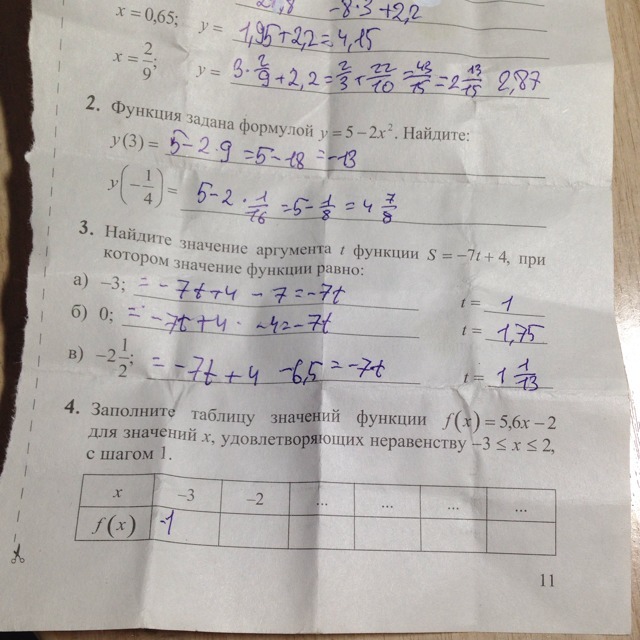 21,8 -8·3+2,2
x = 0,65; y = 1,95+2,2=4,15
x = 2/9; y = 3·2/9+2,2=2/3+22/10=43/15=2 13/15 2,87
2. Функция задана формулой y = 5 – 2x². Найдите:
y(3) = 5-2 9 =5-18=-13
y(–1/4) = 5-2·1/16=5-1/8=4 7/8
3. Найдите значение аргумента t функции S = –7t + 4, при
котором значение функции равно:
а) –3; =-7t+4 -7=-7t t = 1
б) 0; =-7t+4 · -4=-7t t = 1,75
в) –2 1/2; =-7t+4 -6,5=-7t t = 1 1/13
4. Заполните таблицу значений функции f(x) = 5,6x – 2
для значений x, удовлетворяющих неравенству –3 ≤ x ≤ 2,
с шагом 1.
x –3 –2 ... ... ... ...
f(x) -1
11